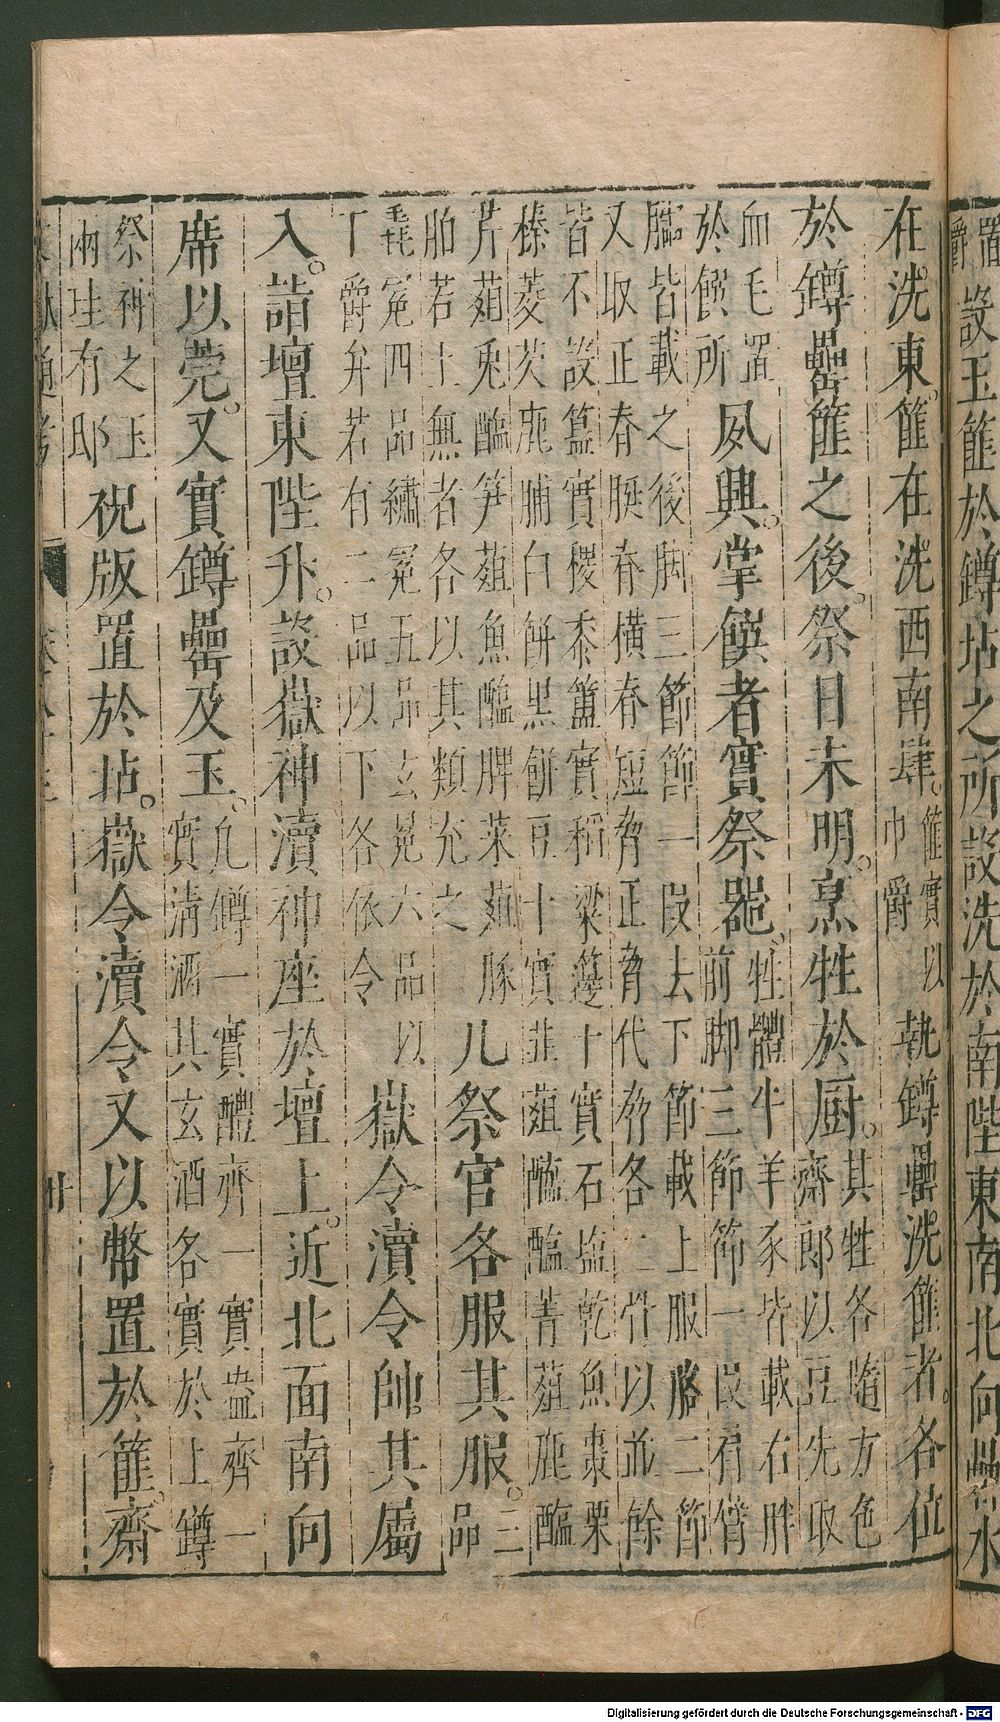 置
爵
設玉篚於罇坫之所設洗於南陛東南北向罍水
在洗東。篚在洗西南肆。
篚實以
巾爵
執罇罍洗篚者。各位
於罇罍篚之後。祭日未明。烹牲於厨。
其牲各隨方色
齋郎以豆先取
血毛置
於饌所
夙興。掌饌者實祭器。
牲體牛羊豕皆載右胖
前脚三節節一段肩臂
臑皆載之後脚三節節一段去下節載上服胳二節
又取正脊脡脊橫脊短脅正脅代脅各二骨以並餘
皆不設簋實稷黍簠實稻粱籩十實石塩乾魚棗栗
榛菱芡鹿脯白餅黒餅豆十實韮葅醓醢菁葅鹿醢
芹葅兎醢笋葅魚醢脾菜葅豚
胉若土無者各以其類充之
凡祭官各服其服。
三
品
毳冕四品繡冕五品玄冕六品以
丁爵弁若有二品以下各依令
嶽令瀆令帥。其屬
入。詣壇東陛升。設嶽神瀆神座於壇上。近北面南向
席以莞。又實罇罍及玉。
凡罇一實醴齊一實盎齊一
實清酒其玄酒各實於上罇
祭神之玉
兩圭有邸
祝版置於坫。嶽令瀆令又以幣置於篚。齋
文獻通考 卷八十三 卅
Digitalisierung gefördert durch die Deutsche Forschungsgemeinschaft - DFG